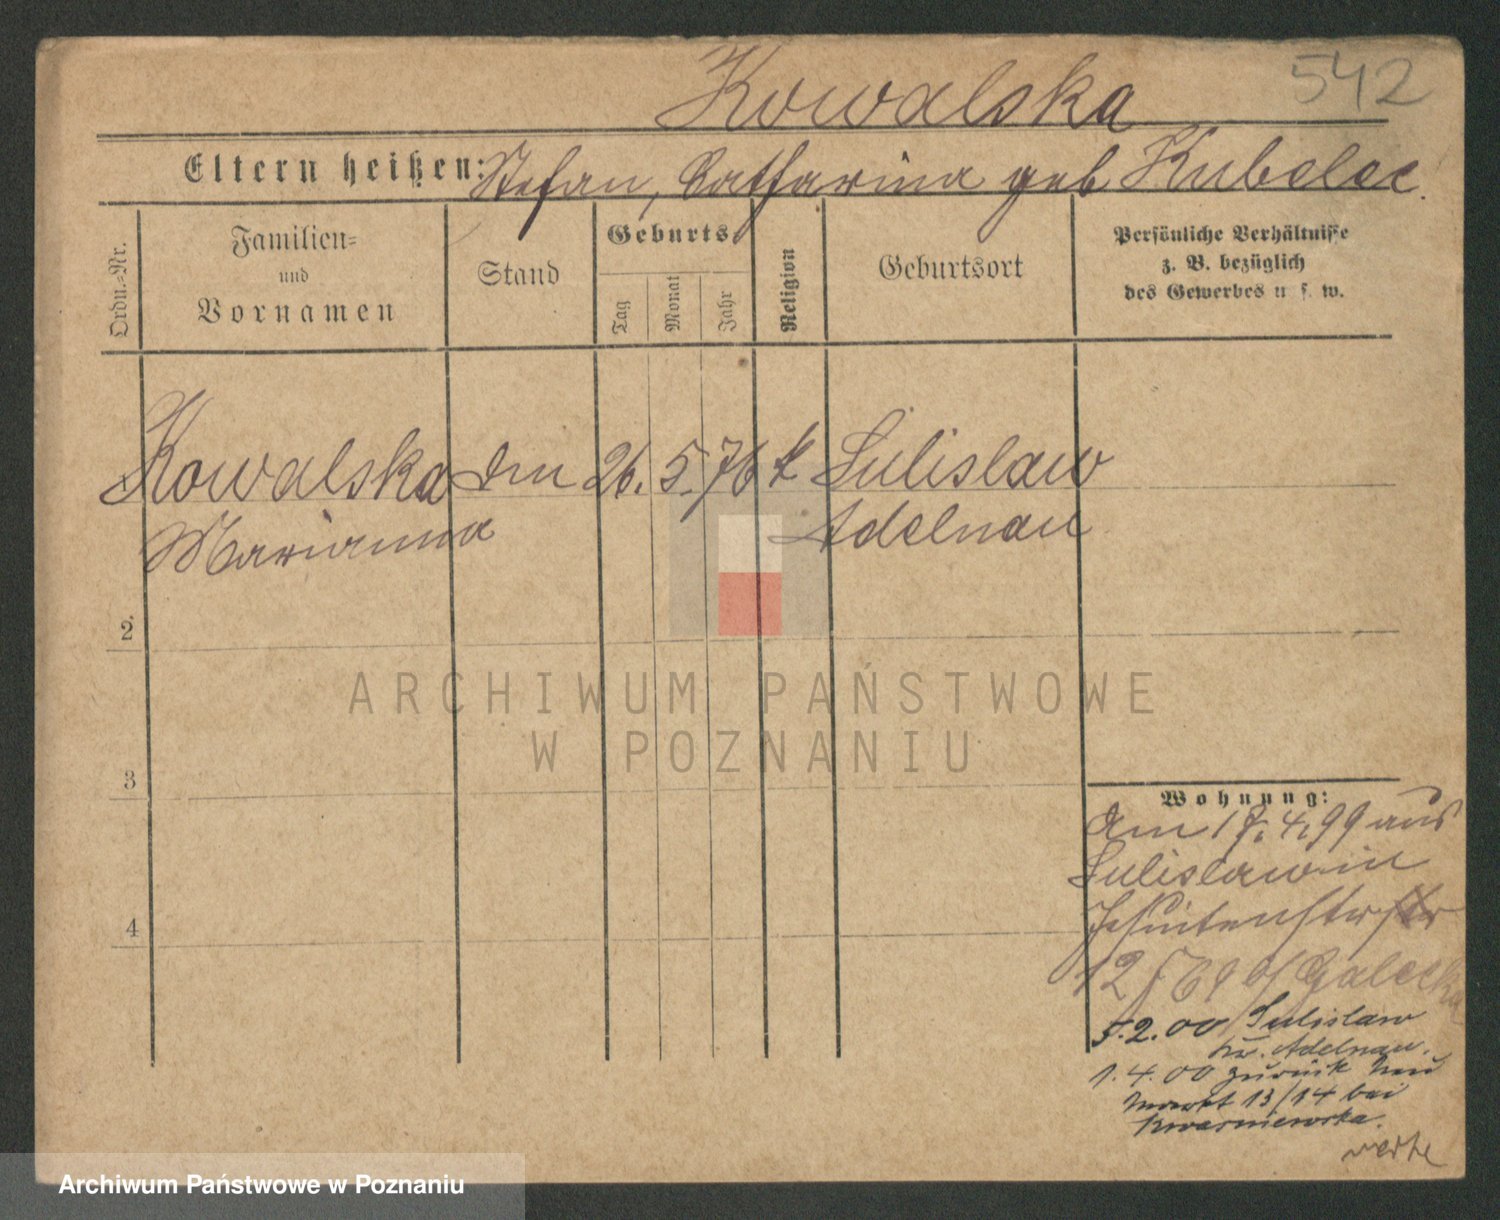 542
Kowalska
Eltern heißen: Stefan, Catharina geb Kubelec
Ordn.-Nr.
Familien-
und
Vornamen
Stand
Geburts-
Tag
Monat
Jahr
Religion
Geburtsort
Persönliche Verhältnisse
z. B. bezüglich
des Gewerbes u. s. w.
Kowalska 26. 5. 76 k Sulislaw
Marianna Adelnau
2.
3
4
ARCHIWUM PAŃSTWOWE
W POZNANIU
Wohnung:
Am 17.4.99 aus
Sulislaw in
Jesuitenstr
12 Galecka
5.2.00 Sulislaw
Kr. Adelnau.
1.4.00 zurück Neu
markt 13/14 bei
Kwasniewska.
Archiwum Państwowe w Poznaniu